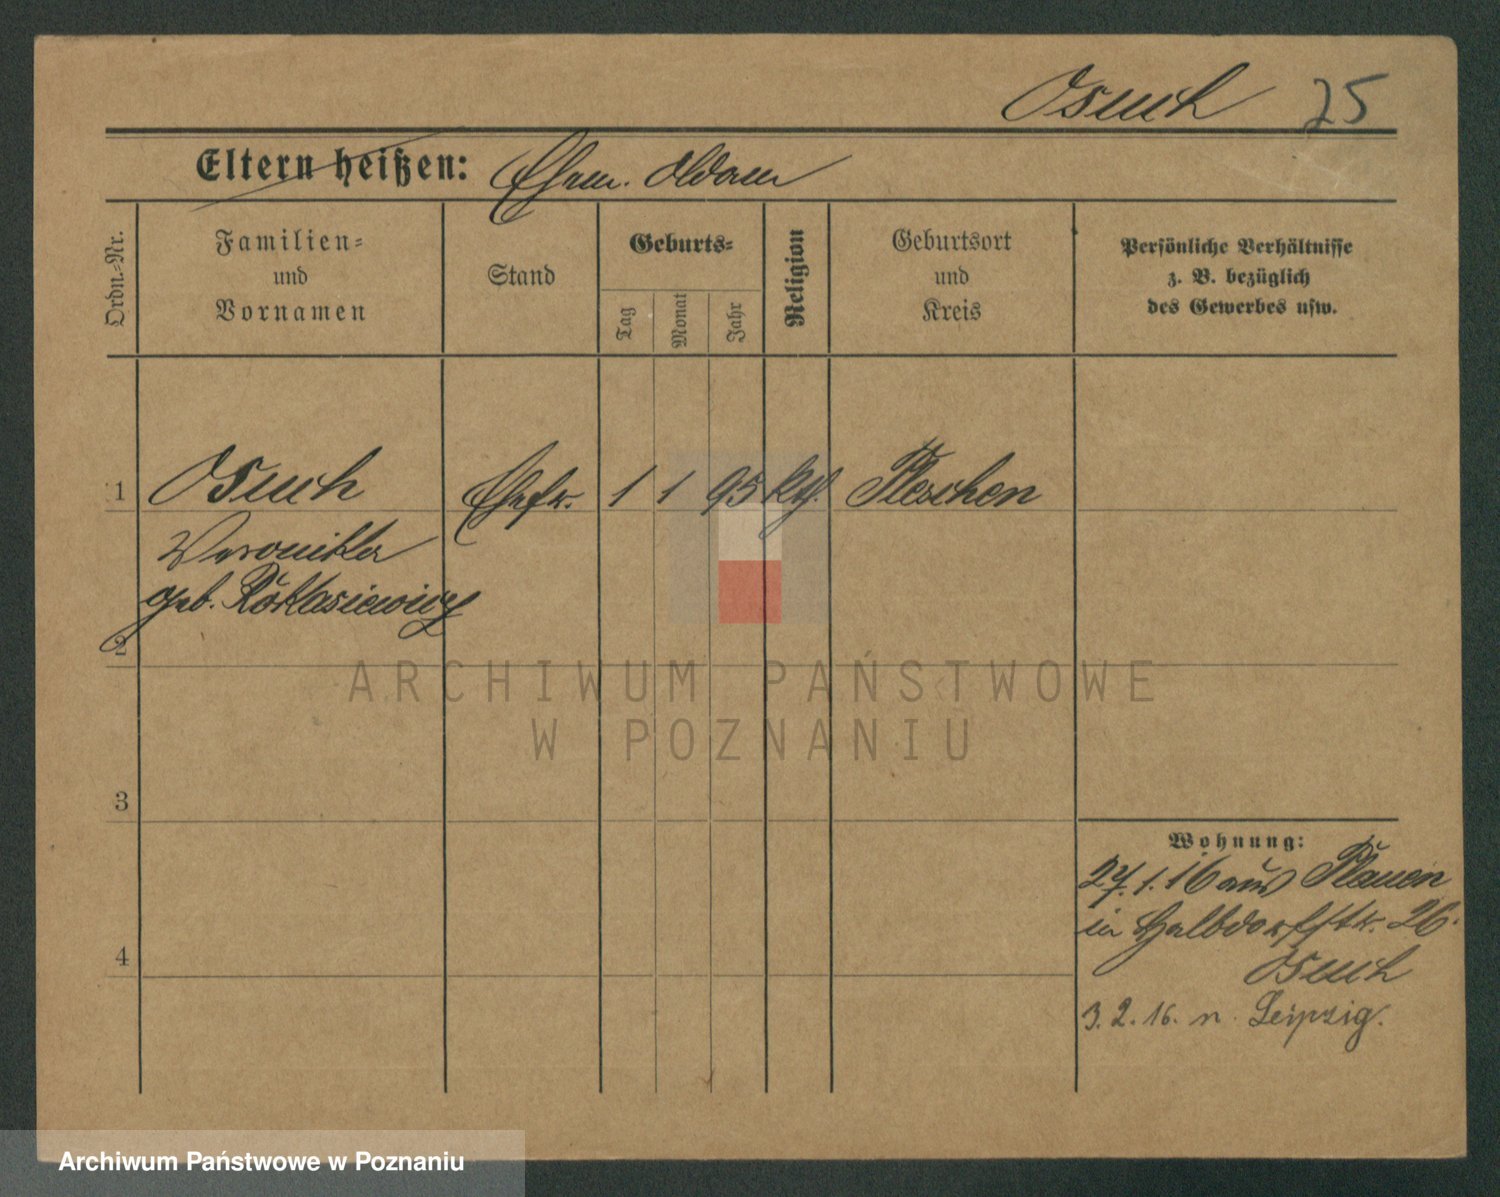 Osuch 25
Eltern heißen: Ehem. Adam
Ordn.-Nr.
Familien-
und
Vornamen
Stand
Geburts-
Tag
Monat
Jahr
Religion
Geburtsort
und
Kreis
Persönliche Verhältnisse
z. B. bezüglich
des Gewerbes usw.
1 Osuch Ehefr. 1 1 95 kth. Pleschen
Veronika
geb.
2
ARCHIWUM PAŃSTWOWE
W POZNANIU
3
Wohnung:
27.1.16 aus Plauen
in Halbdorfstr. 26.
4
Osuch
3.2.16. n. Leipzig.
Archiwum Państwowe w Poznaniu